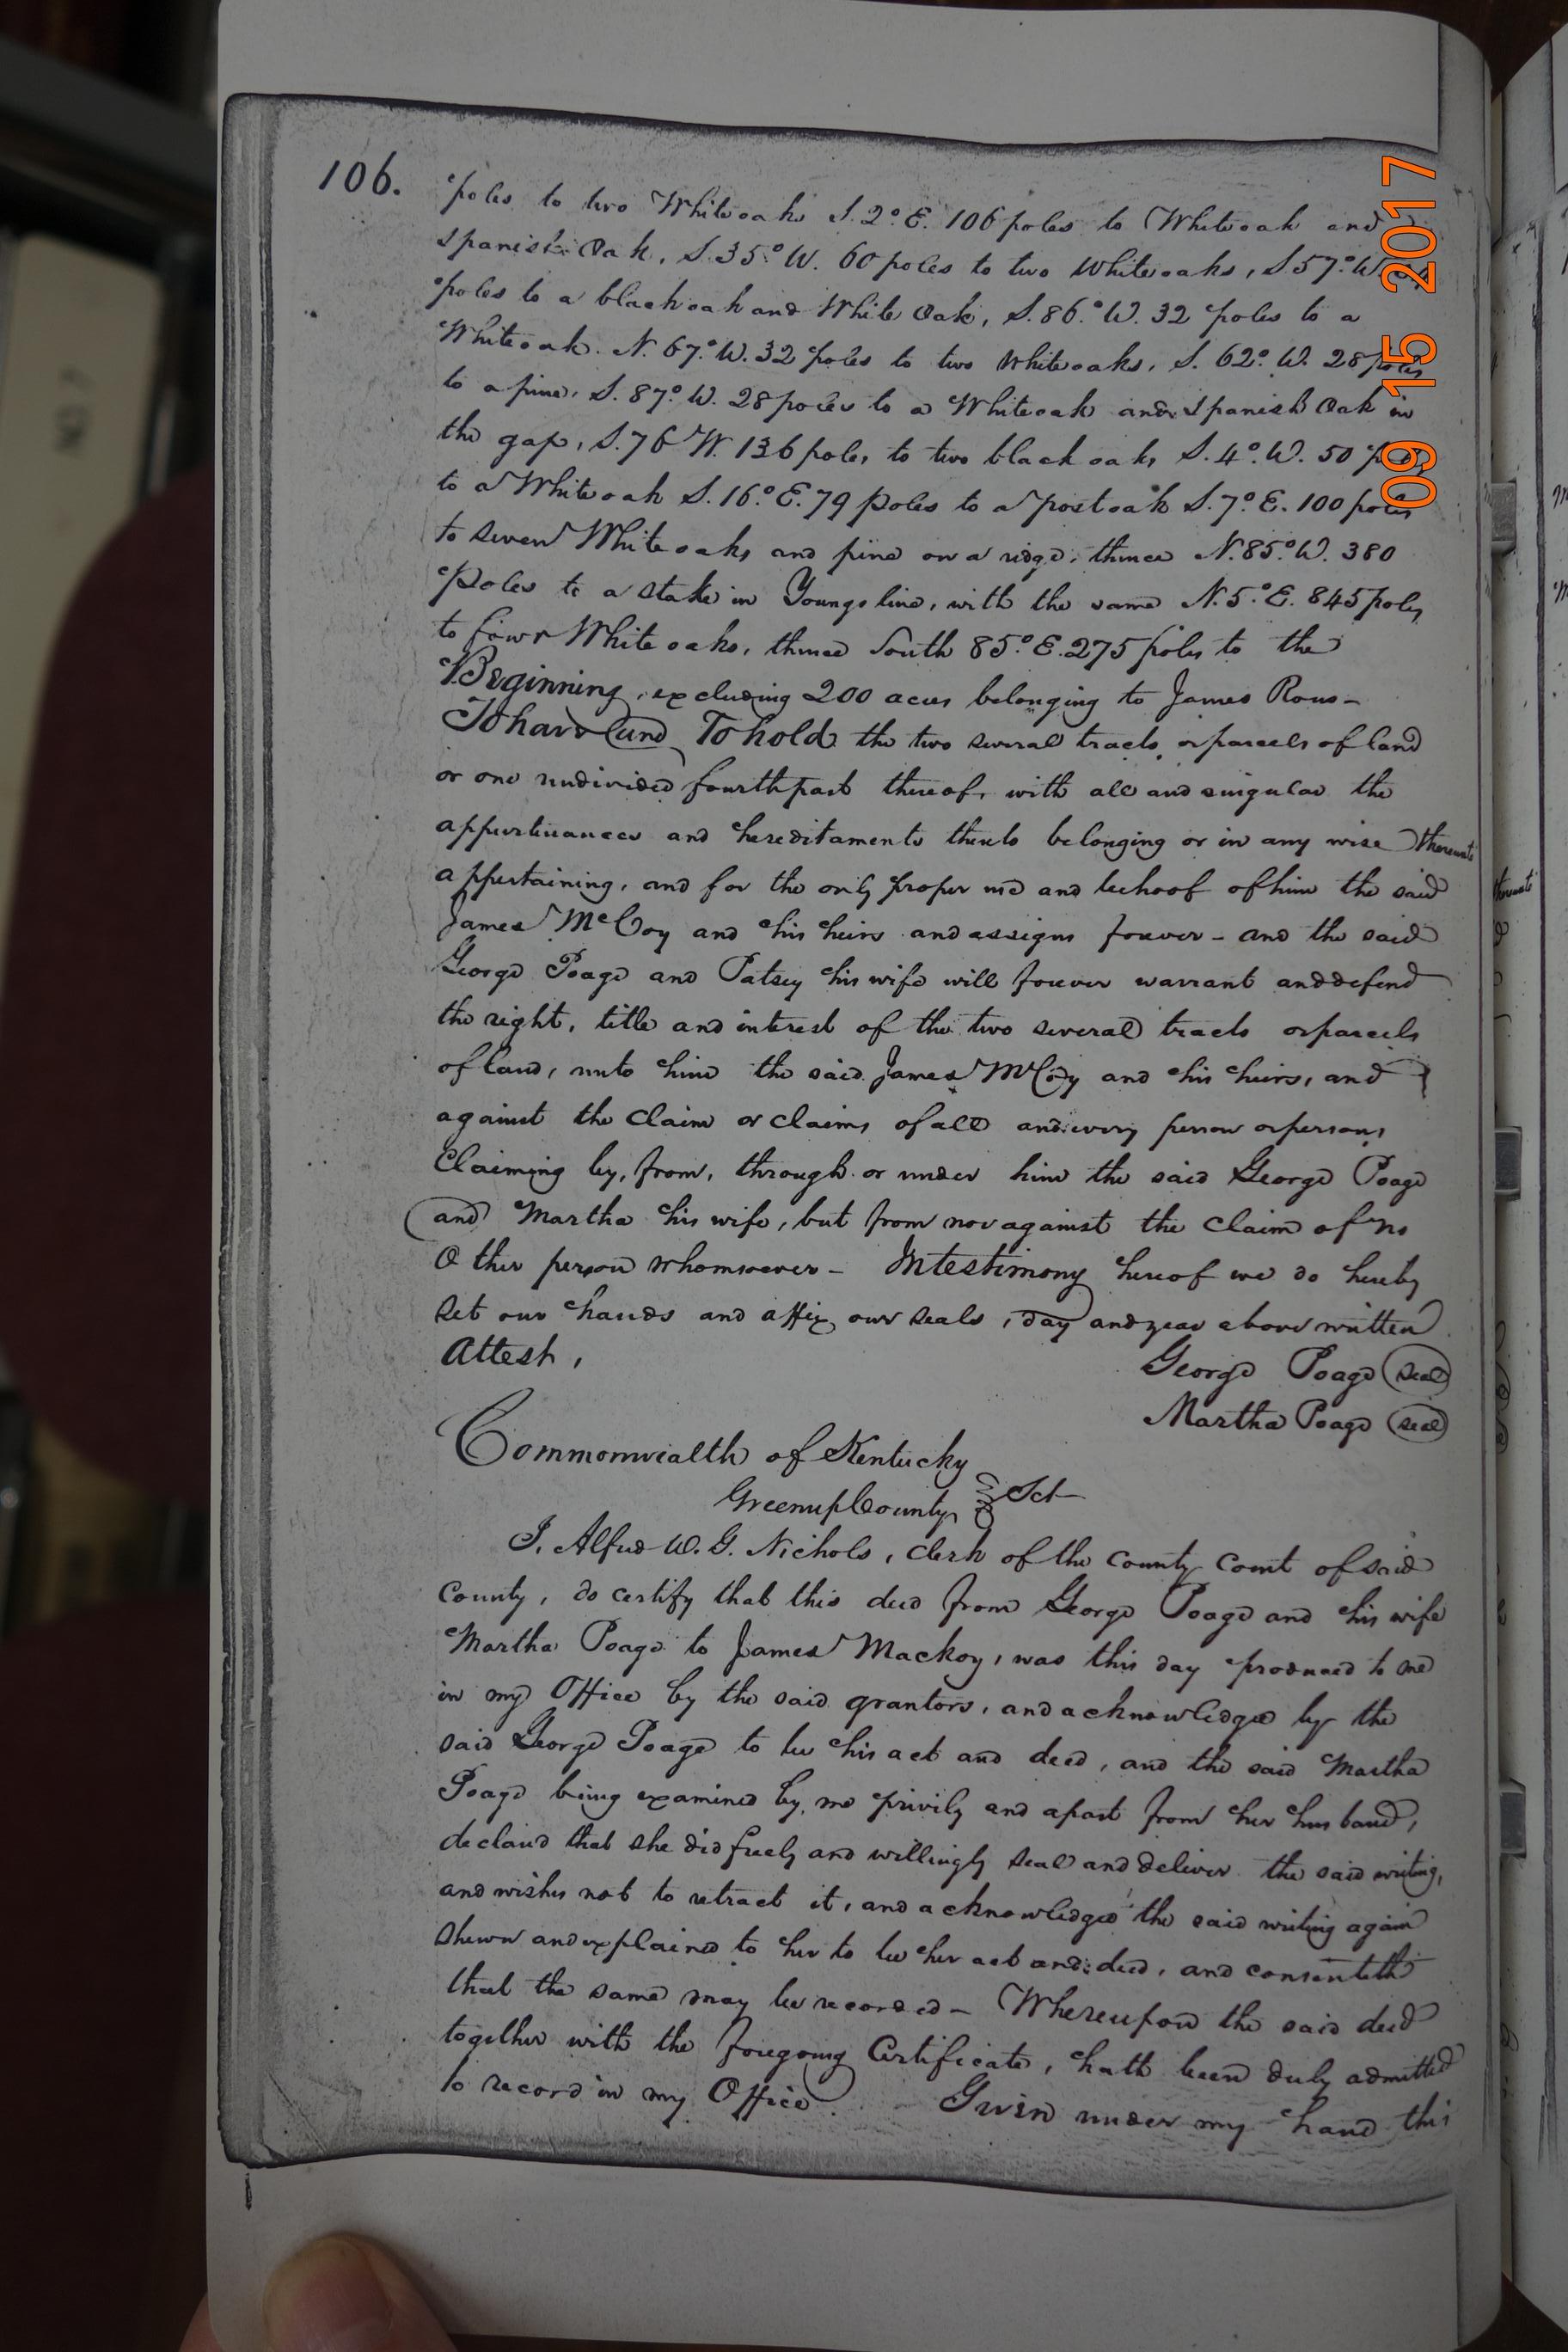 106.
poles to two Whiteoaks S. 2° E. 106 poles to Whiteoak and
Spanish Oak, S. 35° W. 60 poles to two Whiteoaks, S 57° W
poles to a blackoak and White Oak, S. 86° W. 32 poles to a
Whiteoak. N. 67° W. 32 poles to two Whiteoaks, S. 62° W. 28 poles
to a pine, S. 87° W. 28 poles to a Whiteoak and Spanish Oak in
the gap, S. 76 W. 136 poles to two black oaks S. 4° W. 50
to a Whiteoak S. 16° E. 79 poles to a post oak S. 7° E. 100 poles
to seven Whiteoaks and pine on a ridge, thence N. 85° W. 380
Poles to a stake in Youngs line, with the same N. 5° E. 845 poles
to four Whiteoaks, thence South 85° E. 275 poles to the
Beginning, excluding 200 acres belonging to James Rous-
To have and To hold the two several tracts or parcels of land
or one undivided fourth part thereof, with all and singular the
appurtenances and hereditaments thereto belonging or in any wise thereunto
appertaining, and for the only proper use and behoof of him the said
James McCoy and his heirs and assigns forever - and the said
George Poage and Patsey his wife will forever warrant and defend
the right, title and interest of the two several tracts or parcels
of land, unto him the said James McCoy and his heirs, and
against the claim or claims of all and every person or persons
Claiming by, from, through or under him the said George Poage
and Martha his wife, but from nor against the claim of no
Other person whomsoever - In testimony hereof we do hereby
set our hands and affix our seals, day and year above written
Attest,
George Poage (seal)
Martha Poage (seal)
Commonwealth of Kentucky
Greenup County Sct
I, Alfred W. G. Nichols, clerk of the county court of said
County, do certify that this deed from George Poage and his wife
Martha Poage to James Mackoy, was this day produced to me
in my Office by the said grantors, and acknowledged by the
said George Poage to be his act and deed, and the said Martha
Poage being examined by me privily and apart from her husband,
declared that she did freely and willingly seal and deliver the said writing,
and wishes not to retract it, and acknowledged the said writing again
shewn and explained to her to be her act and deed, and consenteth
that the same may be recorded - Whereupon the said deed
together with the foregoing Certificate, hath been duly admitted
to record in my Office. Given under my hand this
09 15 2017